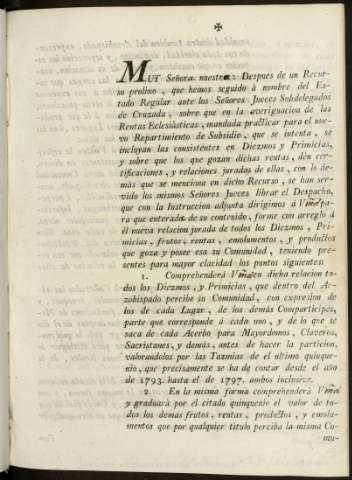 ✠
MUY Señora nuestra: Despues de un Recur-
so prolixo, que hemos seguido à nombre del Es-
tado Regular ante los Señores Jueces Subdelegados
de Cruzada, sobre que en la averiguacion de las
Rentas Eclesiàsticas, mandada practicar para el nue-
vo Repartimiento de Subsidio, que se intenta, se
incluyan las consistentes en Diezmos y Primicias,
y sobre que los que gozan dichas rentas, dèn cer-
tificaciones, y relaciones juradas de ellas, con lo de-
màs que se menciona en dicho Recurso, se han ser-
vido los mismos Señores Jueces librar el Despacho,
que con la Instruccion adjunta dirigimos á Vmd pa-
ra que enterada de su contenido, forme con arreglo á
èl nueva relacion jurada de todos los Diezmos, Pri-
micias, frutos, rentas, emolumentos, y productos
que goza y posee esa su Comunidad, teniendo pre-
sentes para mayor claridad los puntos siguientes:
1. Comprehenderá Vmd en dicha relacion to-
dos los Diezmos, y Primicias, que dentro del Ar-
zobispado percibe su Comunidad, con expresion de
los de cada Lugar, de los demàs Comparticipes,
parte que corresponde à cada uno, y de lo que se
saca de cada Acerbo para Mayordomos, Claveros,
Sacristanes, y demàs, antes de hacer la particion,
valorandolos por las Tazmias del ultimo quinque-
nio, que precisamente se ha de contar desde el año
de 1793. hasta el de 1797. ambos inclusive.
2. En la misma forma comprehenderà Vmd
y graduarà por el citado quinquenio el valor de to-
dos los demàs frutos, rentas, productos, y emolu-
mentos que por qualquier titulo perciba la misma Co-
mu-